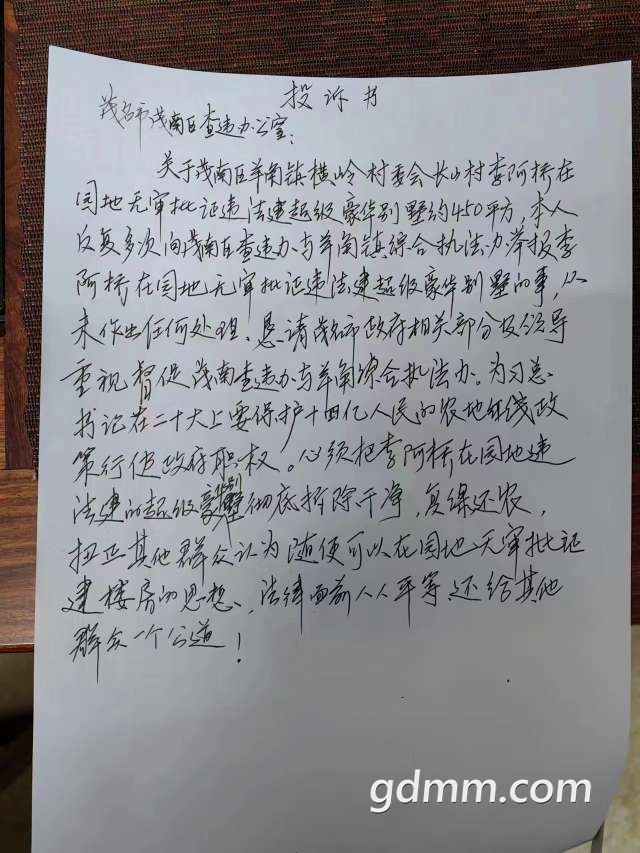 投诉书
茂名市茂南区查违办公室:
关于茂南区羊角镇横岭村委会长山村李阿桥在
园地无审批证违法建超级豪华别墅约450平方,本人
反复多次向茂南区查违办与羊角镇综合执法办举报李
阿桥在园地无审批证违法建超级豪华别墅的事,从
未作出任何处理,恳请茂名市政府相关部分及领导
重视督促茂南查违办与羊角综合执法办。为习总
书记在二十大上要保护十四亿人民的农地红线政
策行使政府职权。必须把李阿桥在园地违
法建的超级豪华别墅彻底拆除干净,复绿还农,
扭正其他群众认为随便可以在园地无审批证
建楼房的思想、法律面前人人平等,还给其他
群众一个公道!
gdmm.com